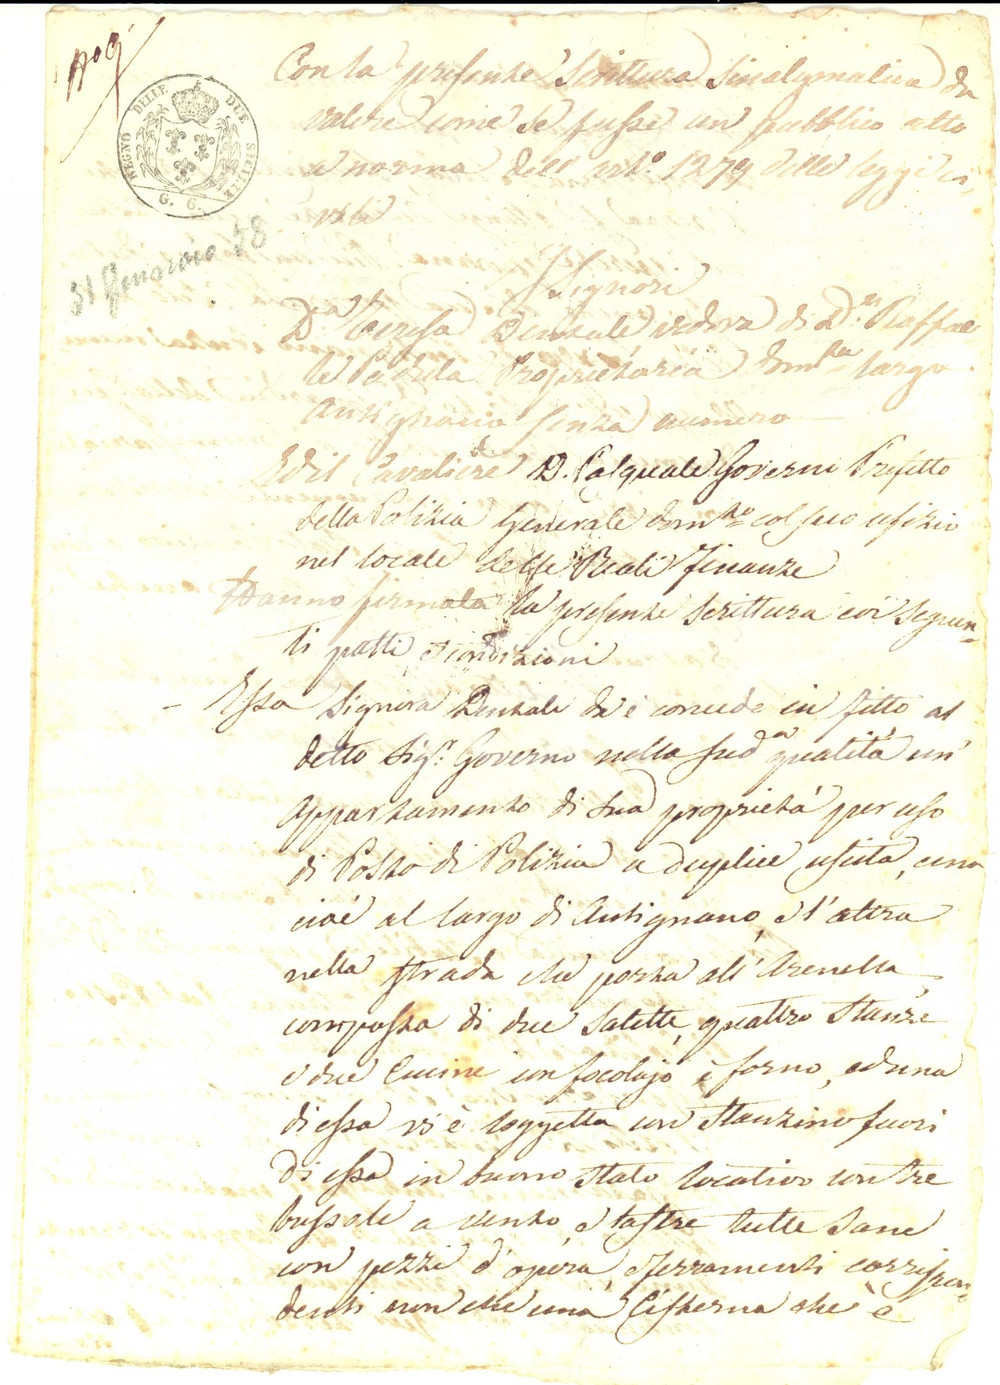 REGNO DELLE DUE SICILIE
G. 6.
31 Gennaio 58
Con la presente Scrittura Sinalagmatica da
valere come se fusse un pubblico atto
a norma dell' art.o 1279 delle leggi ci,
vili
Signori
D.a Teresa Dentale vedova di D.n Raffae
le Proprietaria dom.ta largo
Antignano senza numero
Ed il Cavaliere D. Pasquale Governi Prefetto
della Polizia Generale dom.to col suo ufizio
nel locale delle Reali Finanze
Hanno firmata la presente scrittura coi seguen=
ti patti, e condizioni
– Essa Signora Dentale dà e concede in fitto al
detto Sig.r Governo nella sud.a qualità un'
appartamento di sua proprietà per uso
di Posto di Polizia a duplice uscita, una
cioè al largo di Antignano, e l'altra
nella strada che porta all'Arenella,
composta di due Salette, quattro Stanze
e due Cucine con focolajo e forno, ed una
di essa vi è loggetta con Stanzino fuori
di essa in buono stato locativo con tre
bussole a vento, e lastre tutte sane
con pezzi d'opera, e ferramenti corrispon=
denti non che una Cisterna che è